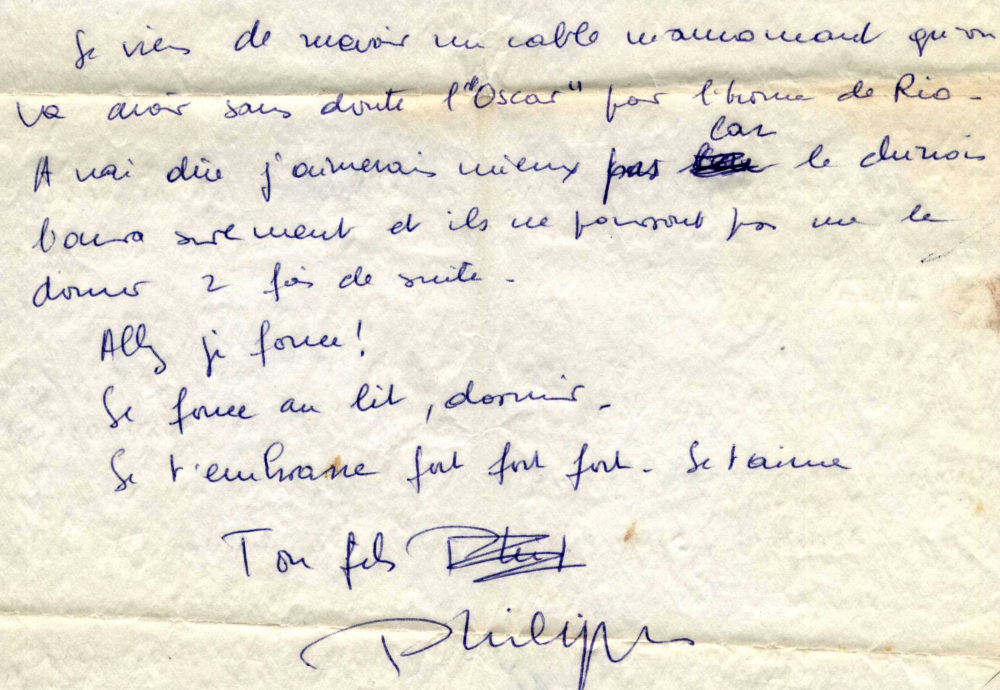 Je viens de recevoir un cable m'annonçant qu'on
va avoir sans doute l'"Oscar" pour l'homme de Rio -
A vrai dire j'aimerais mieux pas car le chinois
l'aura surement et ils ne pourront pas me le
donner 2 fois de suite -
Allz je fonce!
Je fonce au lit, dormir -
Je t'embrasse fort fort fort - Je t'aime
Ton fils
Philippe